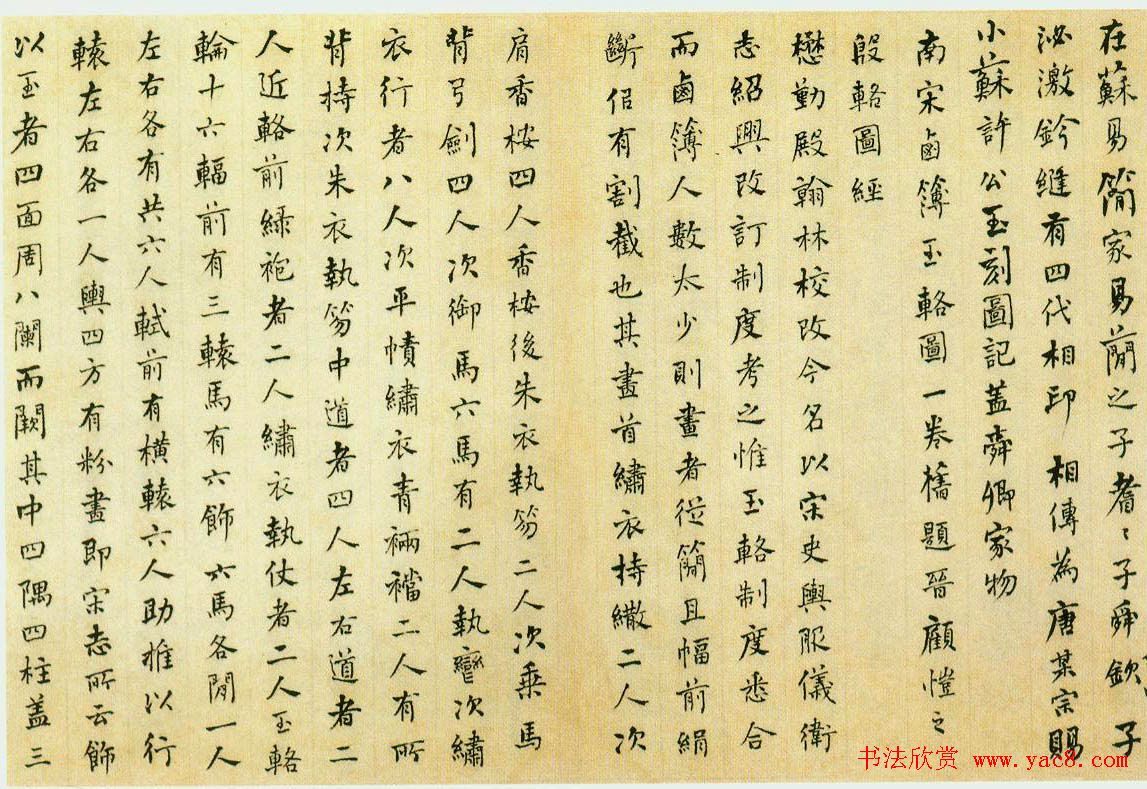 在蘇易簡家易簡之子耆〻子舜欽子
泌激鈐縫有四代相印 相傳為唐某宗賜
小蘇許公玉刻圖記蓋舜卿家物
南宋鹵簿玉輅圖一卷舊題晉顧愷之
殷輅圖經
懋勤殿翰林校改今名以宋史輿服儀衛
志紹興改訂制度考之惟玉輅制度悉合
而鹵簿人數太少則畫者從簡且幅前絹
斷佀有割截也其畫首繡衣持繖二人次
肩香桉四人香桉後朱衣執笏二人次乗馬
背弓劍四人次御馬六馬有二人執轡次繡
衣行者八人次平幘繡衣青裲襠二人有所
背持次朱衣執笏中道者四人左右道者二
人近輅前緑袍者二人繡衣執仗者二人玉輅
輪十六輻前有三轅馬有六飾六馬各閒一人
左右各有共六人軾前有横轅六人助推以行
轅左右各一人輿四方有粉畫即宋志所云飾
以玉者四面周八闌而闕其中四隅四柱蓋三
书法欣赏 www.yac8.com